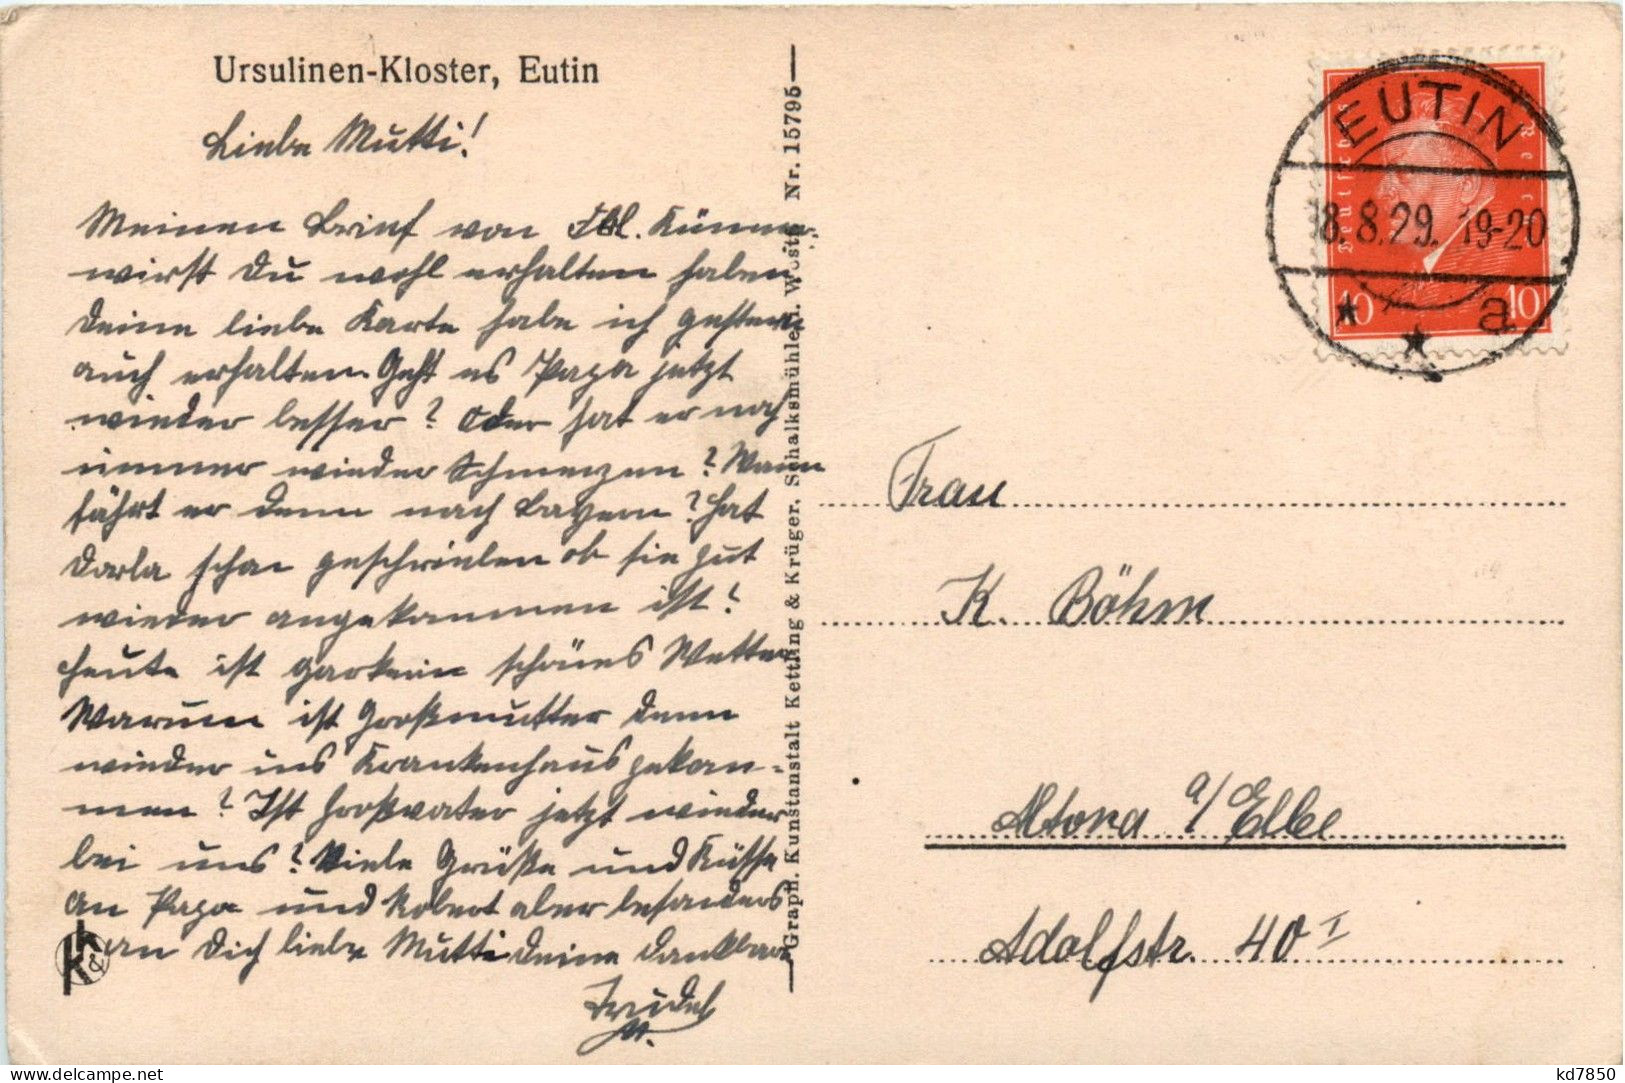 Ursulinen-Kloster, Eutin
Liebe Mutti!
Meinen Brief von Frl. Künne-
wirst Du wohl erhalten haben
Deine liebe Karte habe ich gestern
auch erhalten. Geht es Papa jetzt
wieder besser? Oder hat er noch
immer wieder Schmerzen? Wann
fährt er denn nach Bayern? Hat
Darla schon geschrieben ob sie gut
wieder angekommen ist?
Heute ist garkein schönes Wetter
Warum ist Großmutter denn
wieder ins Krankenhaus gekom-
men? Ist Großvater jetzt wieder
bei uns? Viele Grüße und Küsse
an Papa und Robert aber besonders
an Dich liebe Mutti Deine dankbare
Friedel
Graph. Kunstanstalt Kettling & Krüger, Schalksmühle i. Westf. Nr. 15795
EUTIN
8.8.29. 19-20
a
Deutsches Reich
10 10
Frau
K. Böhm
Altona a/Elbe
Adolfstr. 40 I
K&K
kd7850